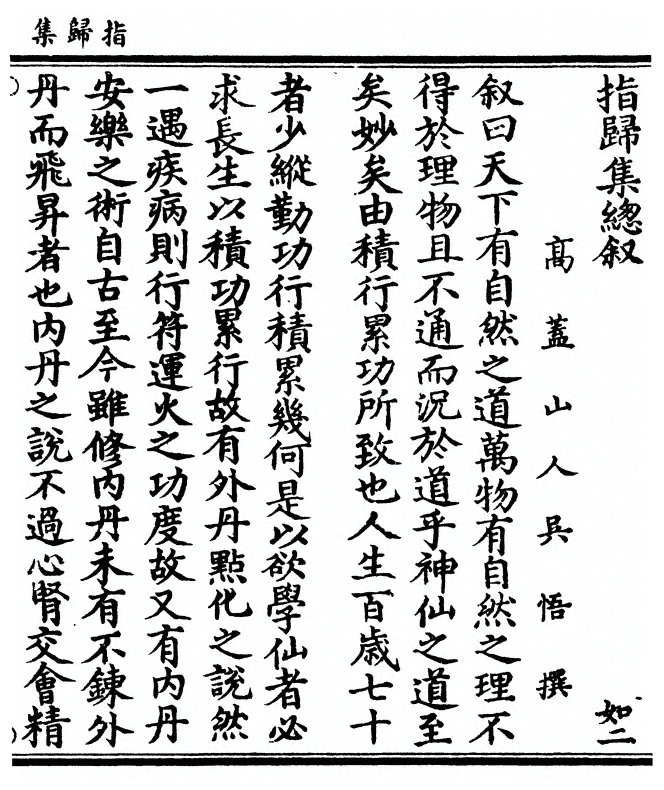 指歸集
指歸集總叙
如二
高蓋山人吳悟撰
叙曰天下有自然之道萬物有自然之理不
得於理物且不通而況於道乎神仙之道至
矣妙矣由積行累功所致也人生百歲七十
者少縱勤功行積累幾何是以欲學仙者必
求長生以積功累行故有外丹點化之說然
一遇疾病則行符運火之功度故又有內丹
安樂之術自古至今雖修內丹未有不鍊外
丹而飛昇者也內丹之說不過心腎交會精